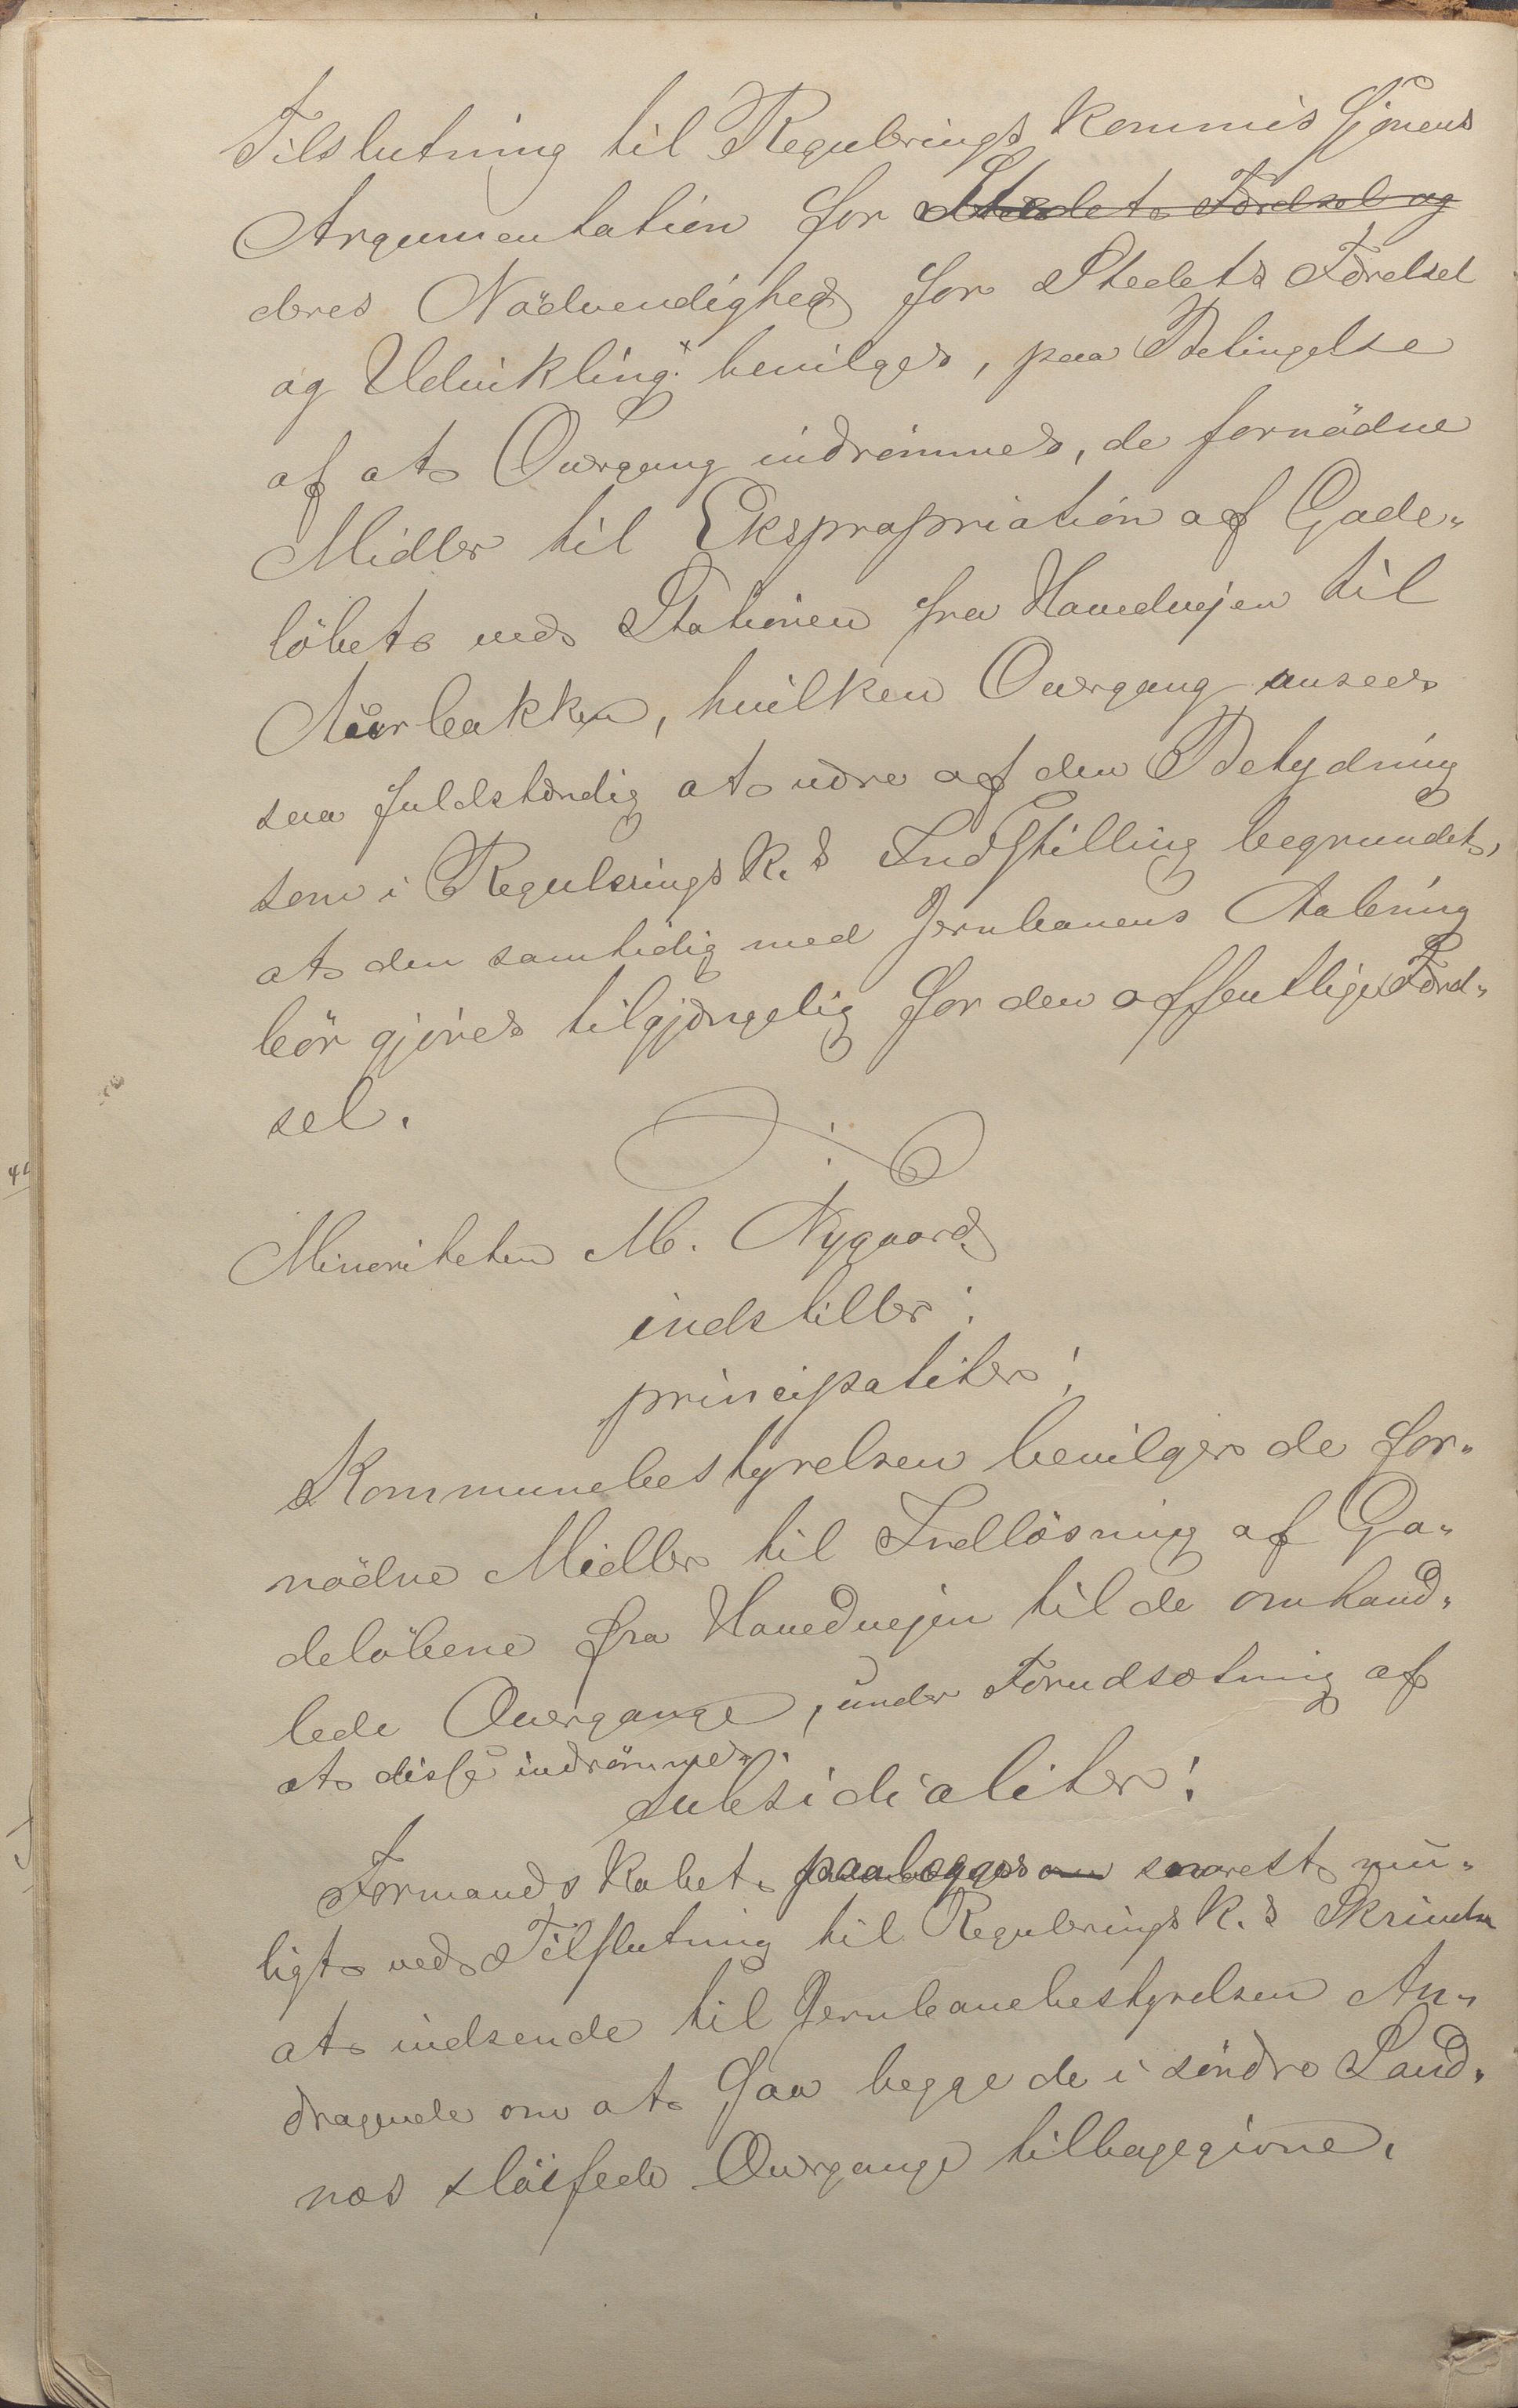 Tilslutning til Regulerings Kommissjonens
Argumentation for Stedets Færdsel og
deres Nödvendighed for Stedets Færdsel
og Udvikling.x bevilges, paa Betingelse
af at Overgang indrömmes, de fornödne
Midler til Ekspropriation af Gade„
löbet ved Stationen fra Hovedvejen til
bakken, hvilken Overgang ansees
saa fuldstændig at være af den Betydning
som i Regulerings K.s Indstilling begrundet,
at den samtidig med Jernbanens Aabning
bör gjöres tilgjængelig for den offentlige Færd„
sel.
Minoriteten M. Nygaard
indstiller:
principaliter:
Kommunebestyrelsen bevilger de for„
nödne Midler til Indlösning af Ga„
delöbene fra Hovedvejen til de omhand„
lede Overgange, under Forudsætning af
at disse indrömmes.
subsidialiter:
Formandskabet paalægges om snarest mu„
ligt ved Tilslutning til Regulerings K.s Skrivelse
at indsende til Jernbanebestyrelsen An„
dragende om at faa begge de i söndre Land„
næs slöifede Overgange tilbagegivne.